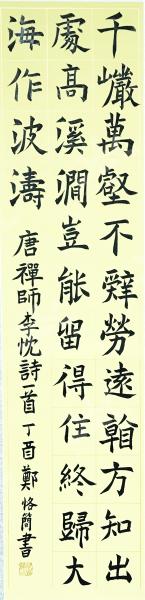 千巗萬壑不辤勞遠𩐟方知出
處高溪澗豈能留得住終歸大
海作波濤
唐禪師李忱詩一首丁酉鄭恪簡書